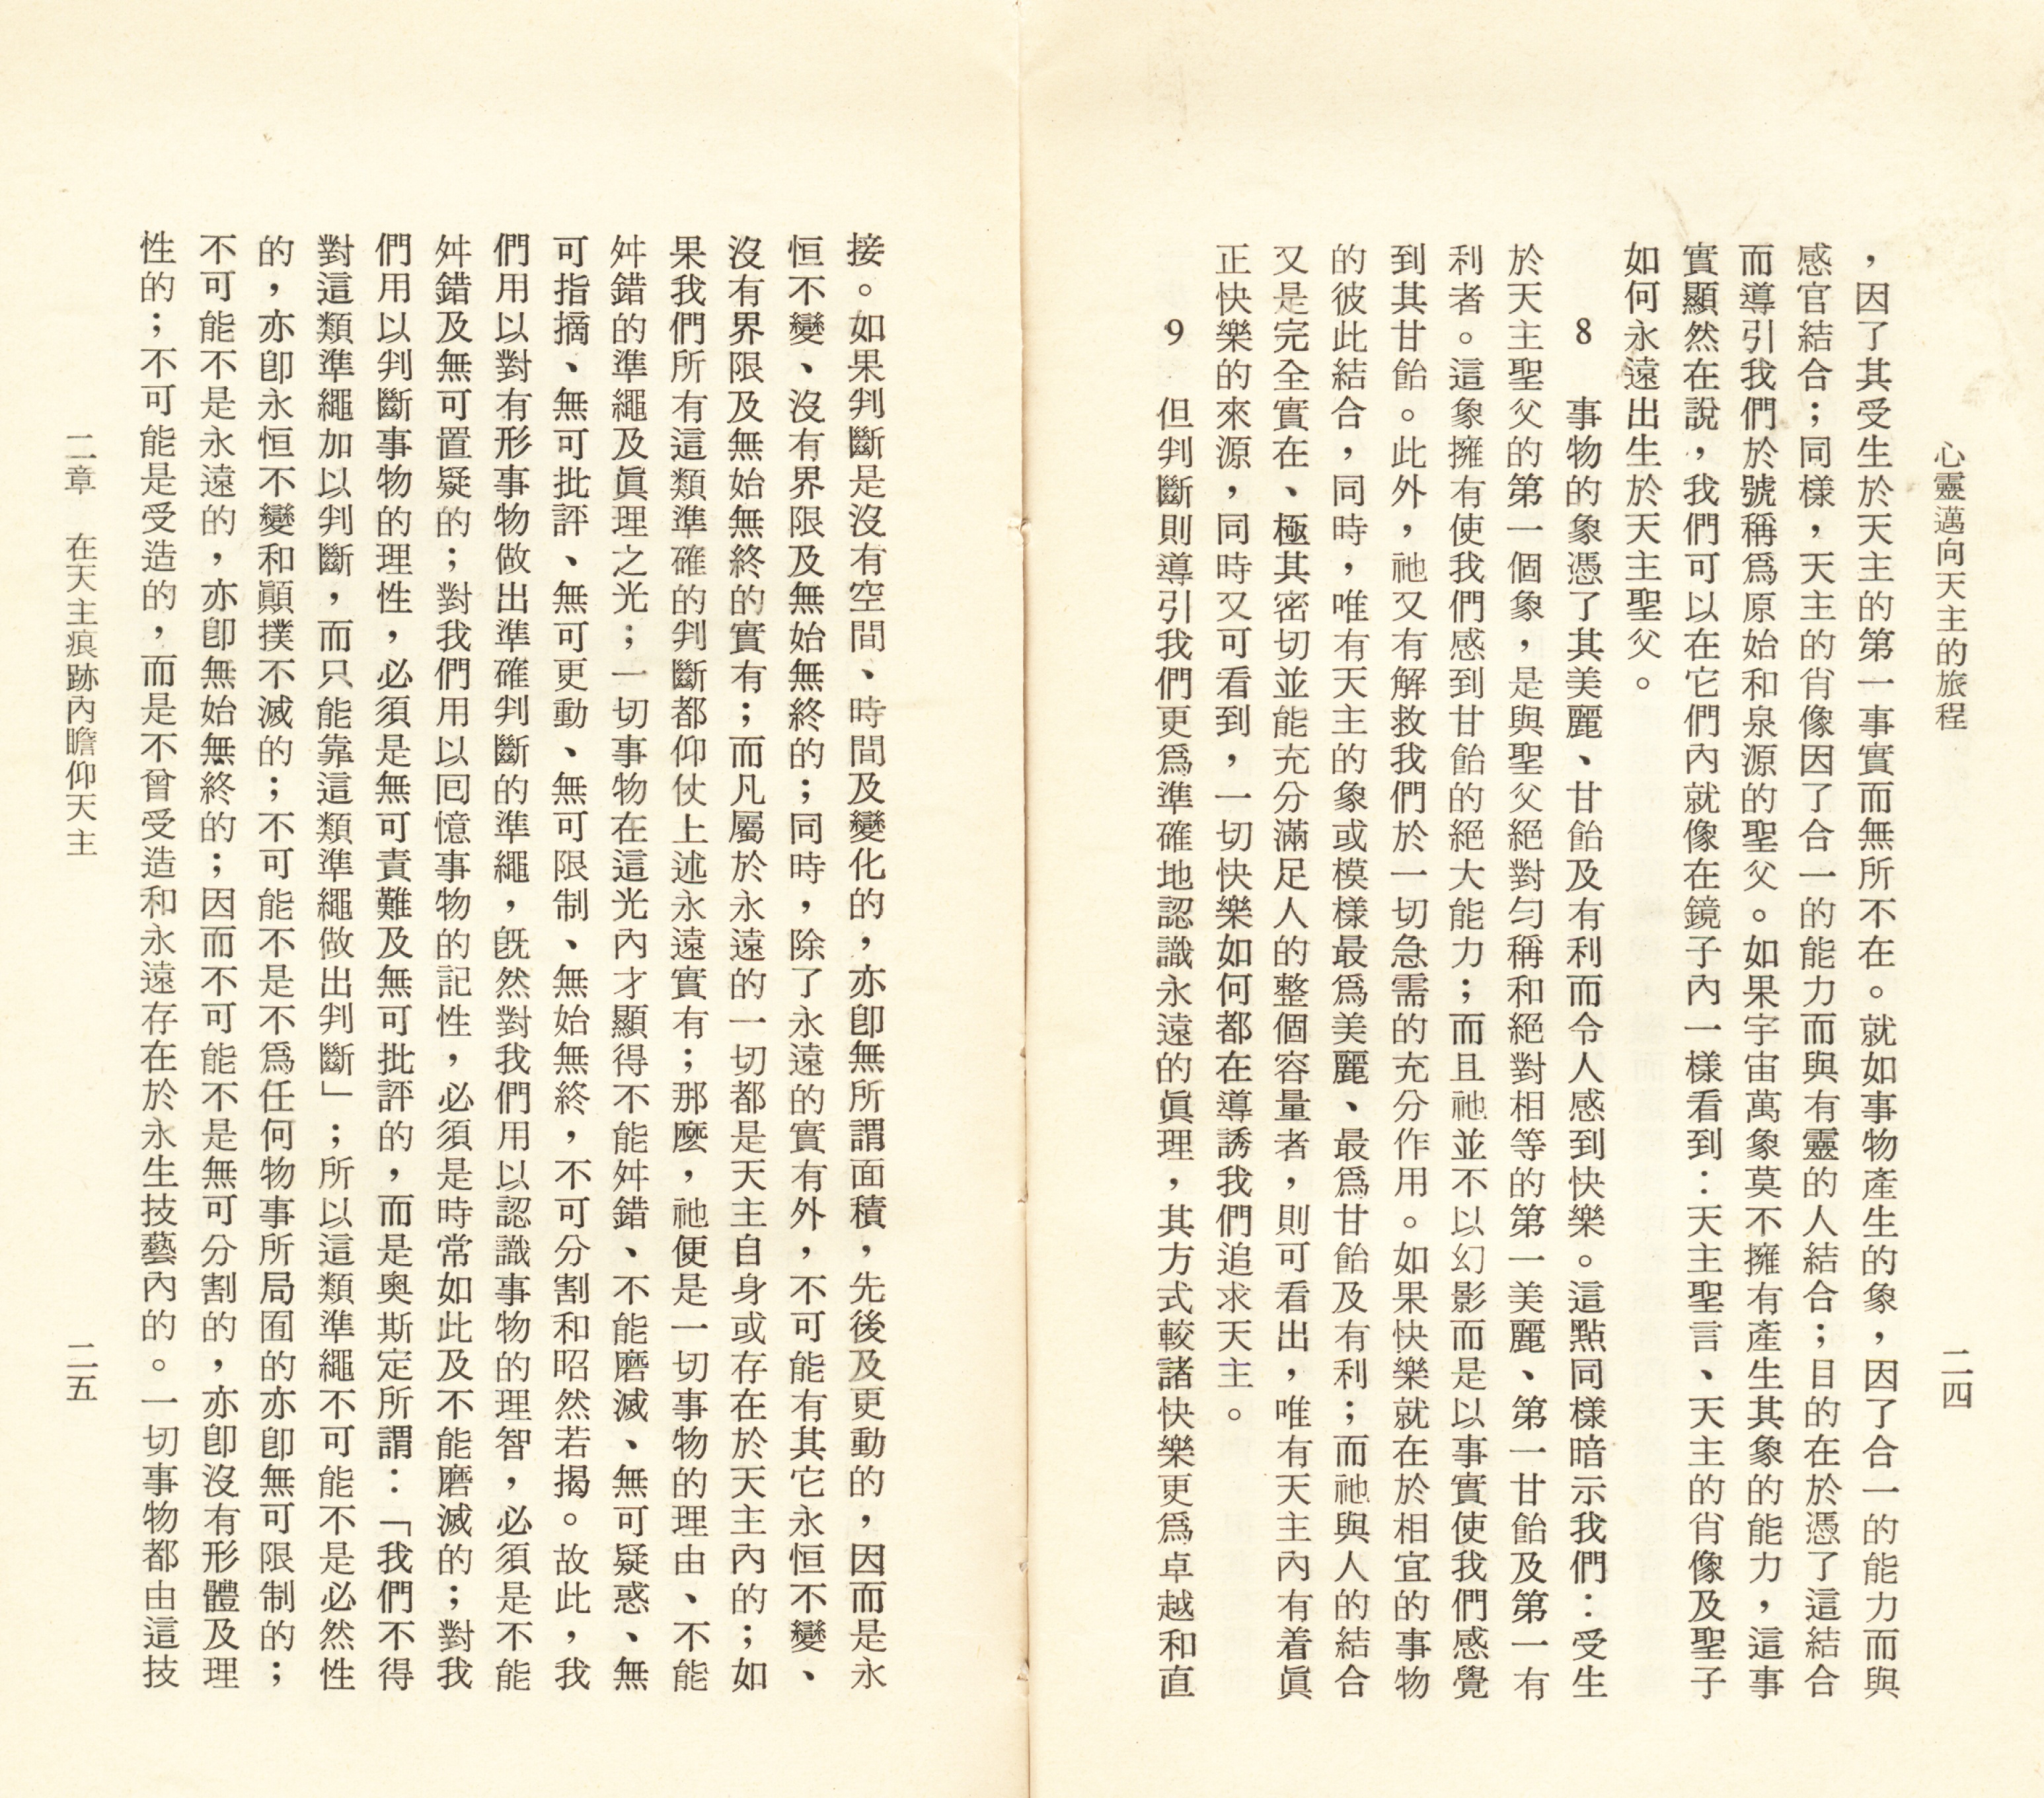 心靈邁向天主的旅程
二四
，因了其受生於天主的第一事實而無所不在。就如事物產生的象，因了合一的能力而與
感官結合；同樣，天主的肖像因了合一的能力而與有靈的人結合；目的在於憑了這結合
而導引我們於號稱爲原始和泉源的聖父。如果宇宙萬象莫不擁有產生其象的能力，這事
實顯然在說，我們可以在它們內就像在鏡子內一樣看到：天主聖言、天主的肖像及聖子
如何永遠出生於天主聖父。
8　事物的象憑了其美麗、甘飴及有利而令人感到快樂。這點同樣暗示我們：受生
於天主聖父的第一個象，是與聖父絕對勻稱和絕對相等的第一美麗、第一甘飴及第一有
利者。這象擁有使我們感到甘飴的絕大能力；而且祂並不以幻影而是以事實使我們感覺
到其甘飴。此外，祂又有解救我們於一切急需的充分作用。如果快樂就在於相宜的事物
的彼此結合，同時，唯有天主的象或模樣最爲美麗、最爲甘飴及有利；而祂與人的結合
又是完全實在、極其密切並能充分滿足人的整個容量者，則可看出，唯有天主內有着眞
正快樂的來源，同時又可看到，一切快樂如何都在導誘我們追求天主。
9　但判斷則導引我們更爲準確地認識永遠的眞理，其方式較諸快樂更爲卓越和直
接。如果判斷是沒有空間、時間及變化的，亦卽無所謂面積，先後及更動的，因而是永
恒不變、沒有界限及無始無終的；同時，除了永遠的實有外，不可能有其它永恒不變、
沒有界限及無始無終的實有；而凡屬於永遠的一切都是天主自身或存在於天主內的；如
果我們所有這類準確的判斷都仰仗上述永遠實有；那麼，祂便是一切事物的理由、不能
舛錯的準繩及眞理之光；一切事物在這光內才顯得不能舛錯、不能磨滅、無可疑惑、無
可指摘、無可批評、無可更動、無可限制、無始無終，不可分割和昭然若揭。故此，我
們用以對有形事物做出準確判斷的準繩，旣然對我們用以認識事物的理智，必須是不能
舛錯及無可置疑的；對我們用以囘憶事物的記性，必須是時常如此及不能磨滅的；對我
們用以判斷事物的理性，必須是無可責難及無可批評的，而是奧斯定所謂：「我們不得
對這類準繩加以判斷，而只能靠這類準繩做出判斷」；所以這類準繩不可能不是必然性
的，亦卽永恒不變和顚撲不滅的；不可能不是不爲任何物事所局囿的亦卽無可限制的；
不可能不是永遠的，亦卽無始無終的；因而不可能不是無可分割的，亦卽沒有形體及理
性的；不可能是受造的，而是不曾受造和永遠存在於永生技藝內的。一切事物都由這技
二章　在天主痕跡內瞻仰天主
二五